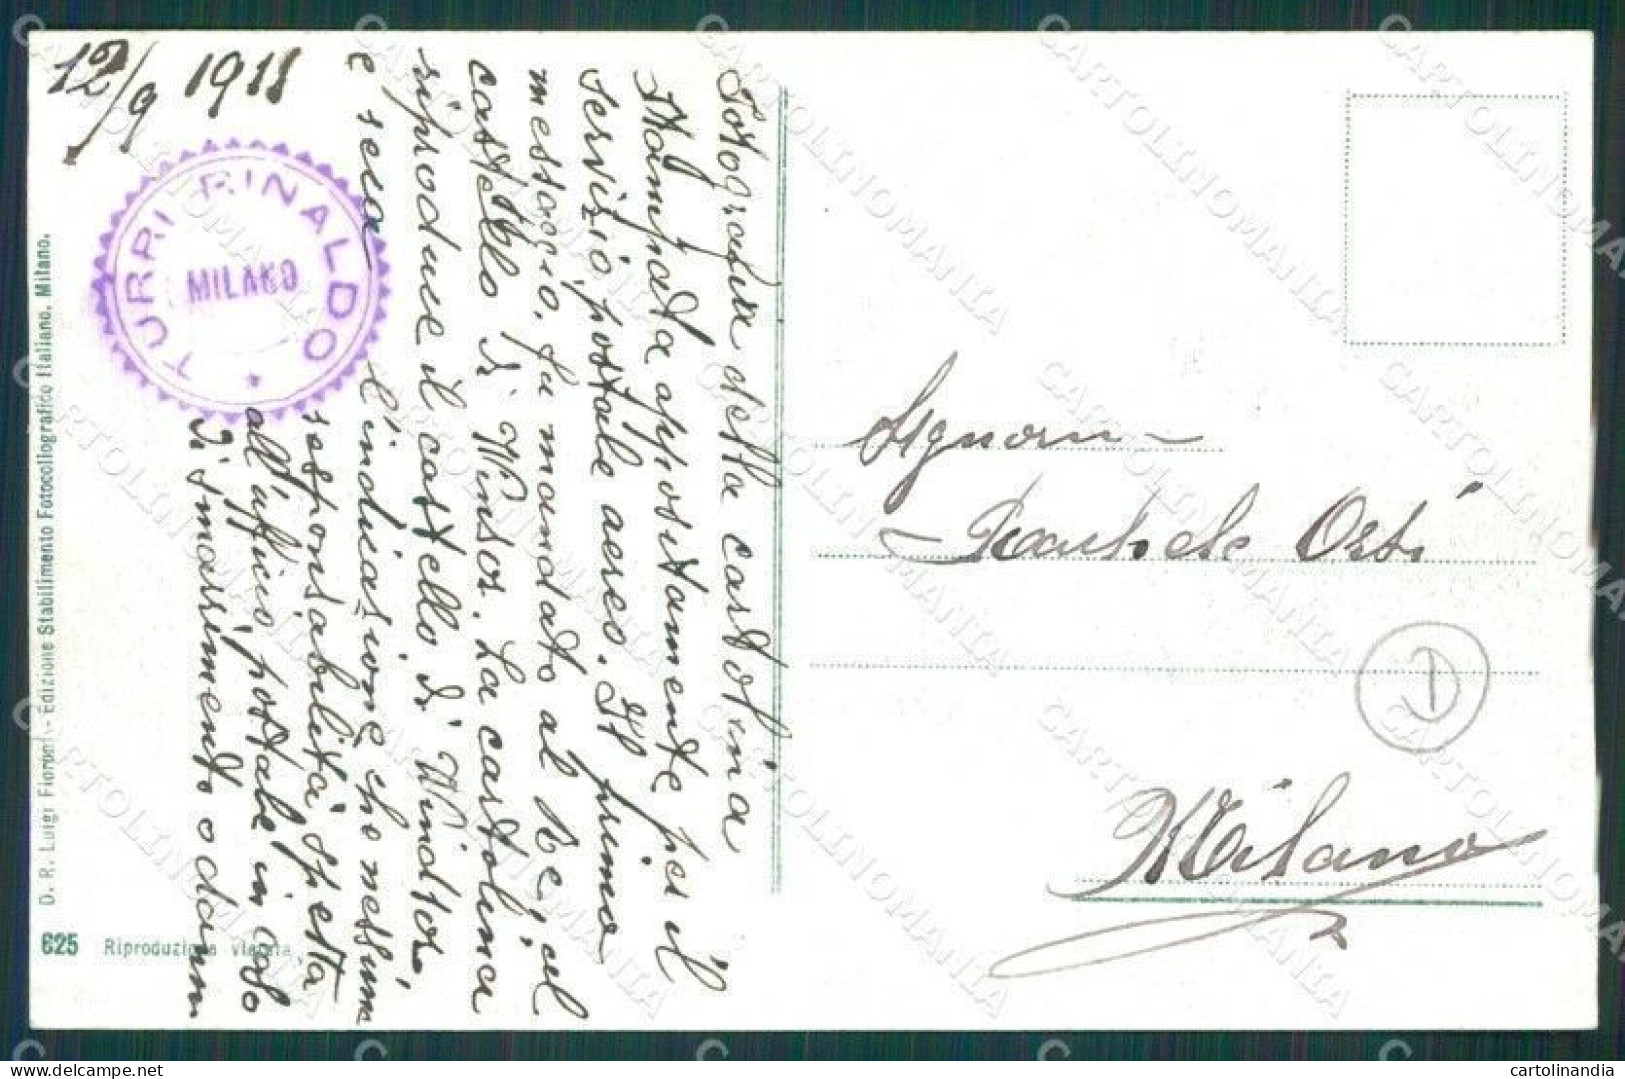 12/9 1911
TURRI RINALDO
MILANO
Fotografia della cartolina
stampata appositamente per il
servizio postale aereo. Il primo
messaggio, fu mandato al Re, al
castello di Winsor. La cartolina
riproduce il castello di Windsor
e reca
l'indicazione che nessuna
responsabilità spetta
all'ufficio postale in caso
di smarrimento o danni
D. R. Luigi Fioroni - Edizione Stabilimento Fotocollografico Italiano. Milano.
625 Riproduzione vietata
Signora
Osti
Milano
1
CARTOLINOMANIA
cartolinandia